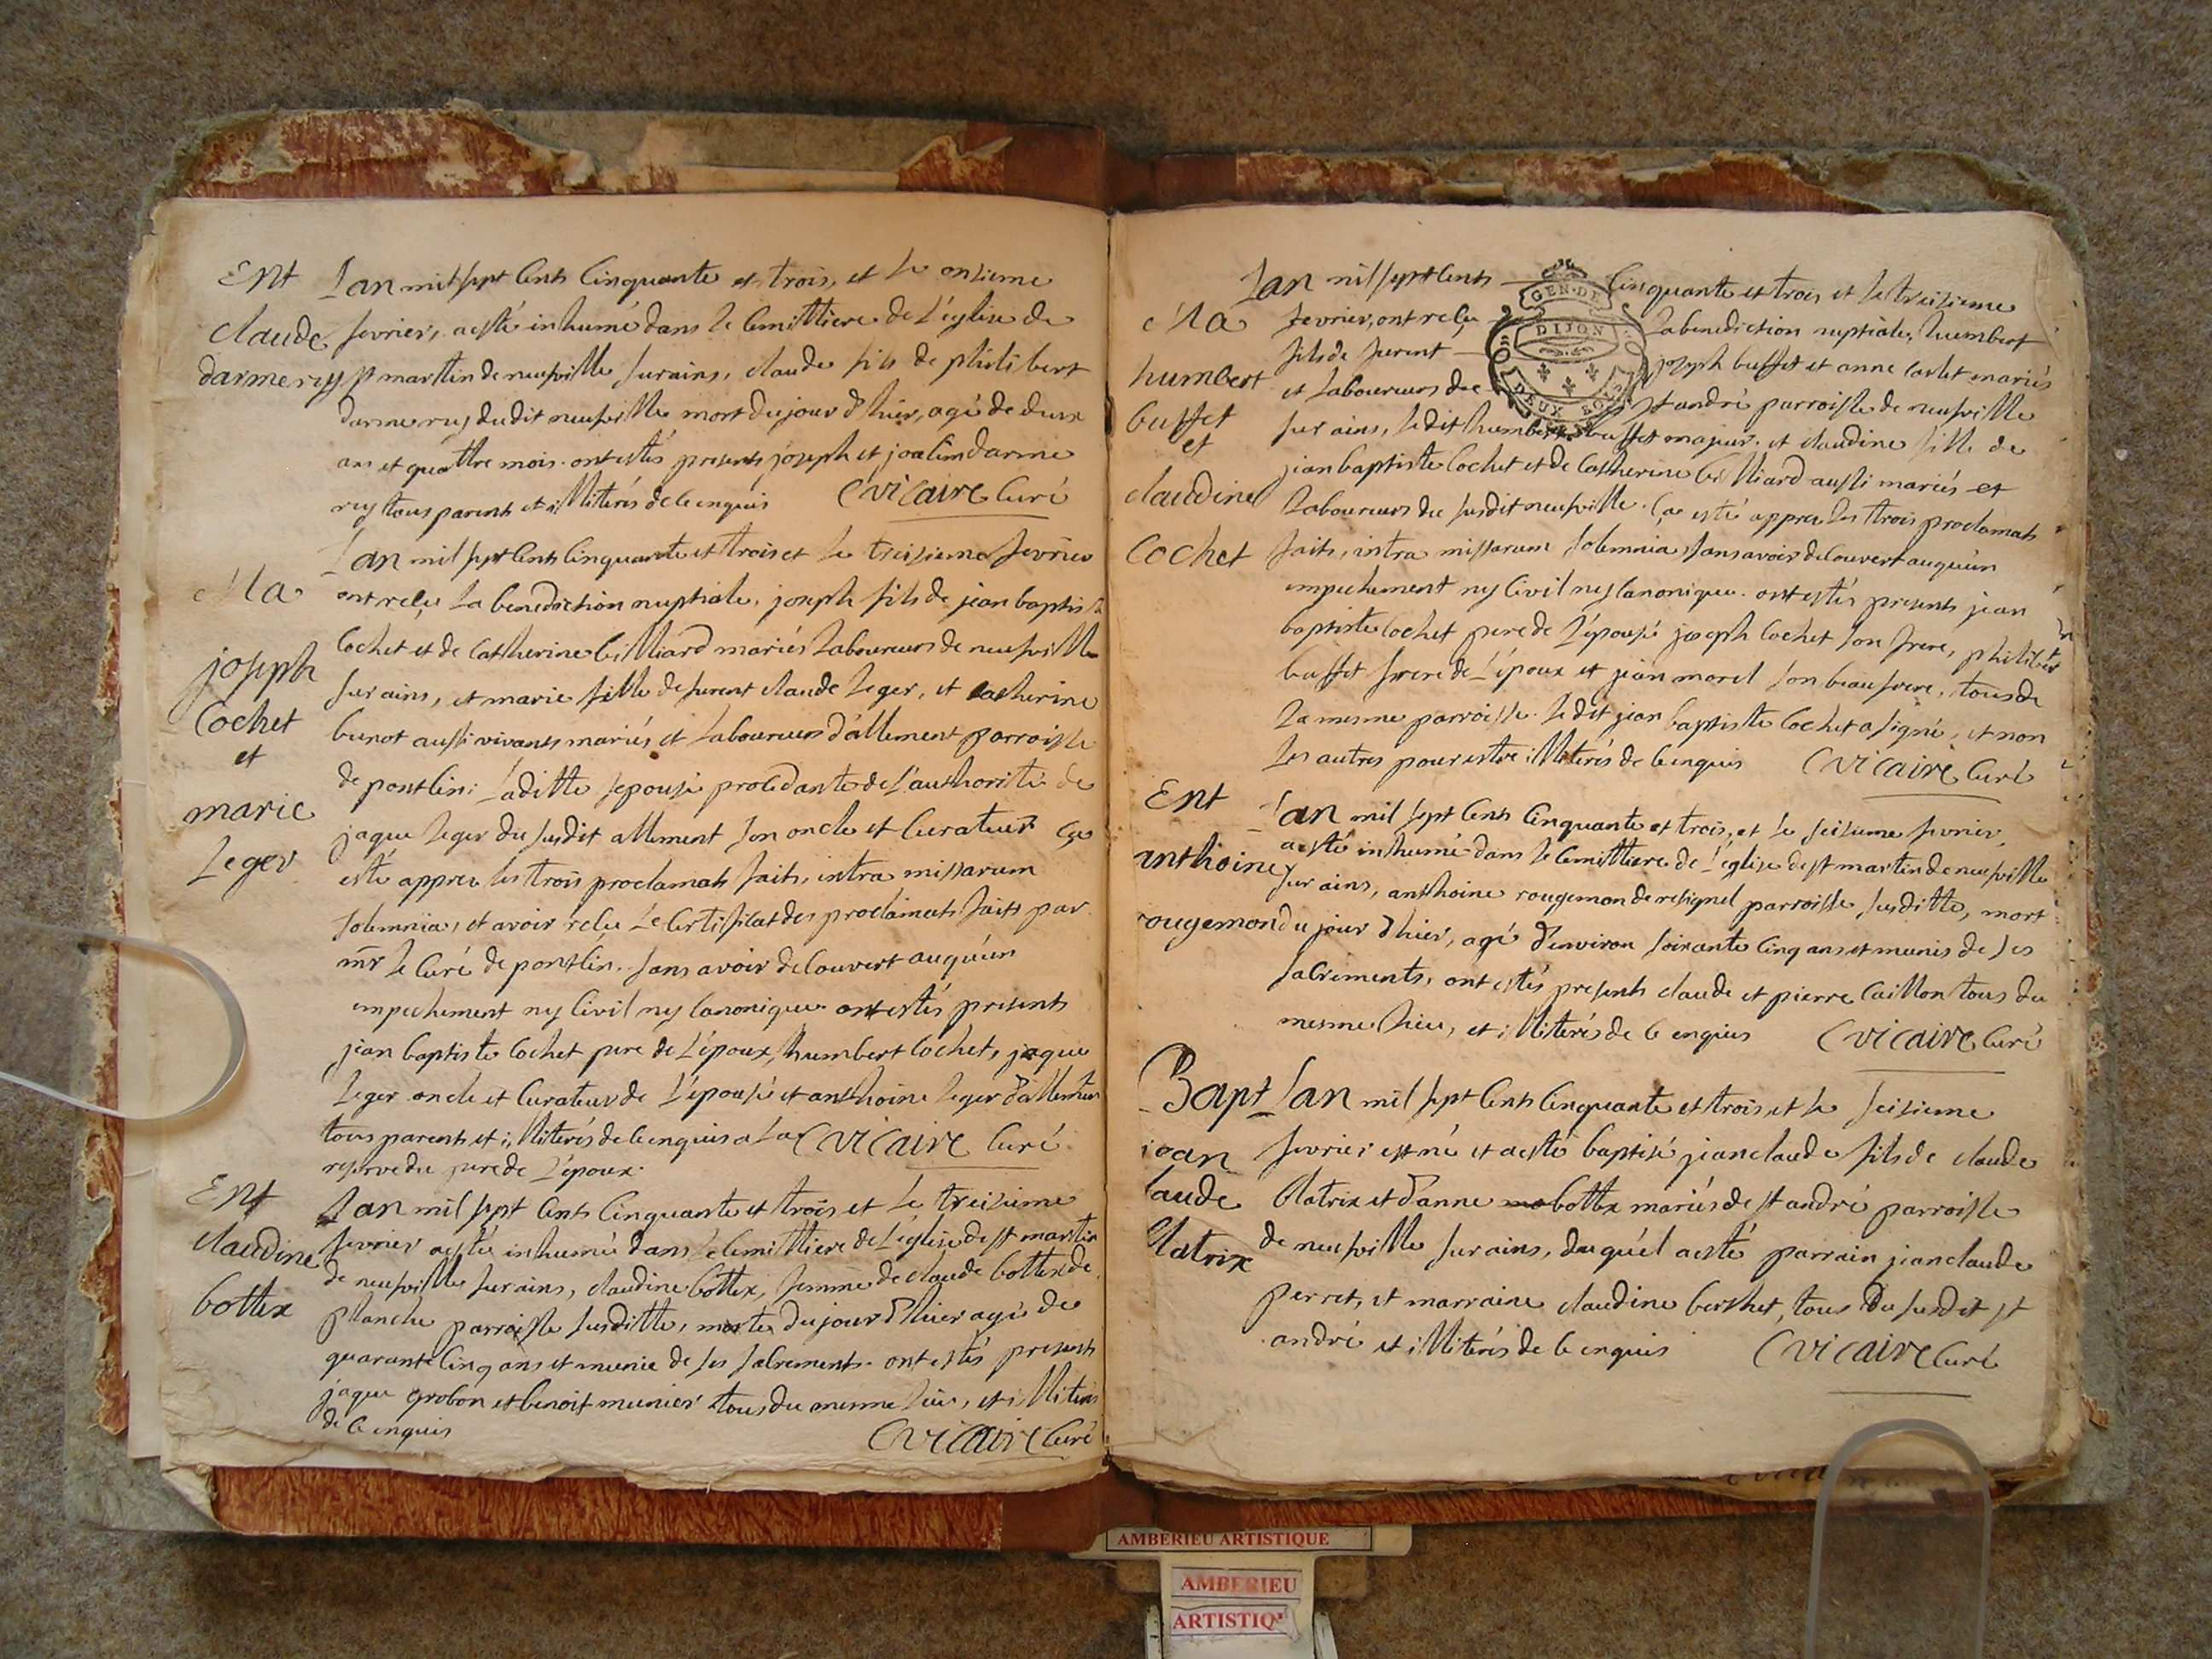 Ent
claude
darmerey
Lan mil sept cents cinquante et trois, et le onzieme
fevrier, a esté inhumé dans le cemittiere de l'église de
st martin de neufville sur ains, claude fils de philibert
darmerey dudit neufville mort du jour d'hier, agé de deux
ans et quattre mois. ont estés presents joseph et joachim darme
rey tous parents et illiterés de ce enquis C vicaire curé
Ma
joseph
Cochet
et
marie
Leger
Lan mil sept cents cinquante et trois et le treizieme fevrier
ont reçu la benediction nuptiale, joseph fils de jean baptiste
Cochet et de Catherine billiard mariés Laboureurs de neufville
sur ains, et marie fille de furent claude Leger, et catherine
bunot aussi vivants mariés et Laboureurs d'allement parroisse
de pontlin: Laditte épousé procedante de l'authorité de
jaque Leger du susdit allement son oncle et curateur ça
esté appres les trois proclamats faits, intra missarum
solemnia, et avoir reçu le certificat des proclamats faits par
mr le curé de pontlin. sans avoir decouvert auqu'un
empechement ny civil ny canonique. ont estés presents
jean baptiste Cochet pere de L'époux, humbert Cochet, jaque
Leger oncle et curateur de L'épousé et anthoine Leger d'allement
tous parents et illiterés de ce enquis a la C vicaire curé
reserve du pere de L'époux.
Ent
claudine
bottex
Lan mil sept cents cinquante et trois et le treizieme
fevrier a esté inhumé dans le cemittiere de L'église de st martin
de neufville sur ains, claudine bottex, femme de claude bottex de
planche parroisse susditte, morte du jour d'hier agé de
quarante cinq ans et munie de ses sacrements. ont estés presents
jaque grobon et benoit munier tous du mesme lieu, et illiterés
de ce enquis
C vicaire curé
Ma
humbert
buffet
et
claudine
Cochet
Lan mil sept cents cinquante et trois et le treizieme
fevrier, ont reçu la benediction nuptiale, humbert
fils de furent joseph buffet et anne carlet mariés
et Laboureurs de st andré parroisse de neufville
sur ains, le dit humbert buffet majeur. et claudine fille de
jean baptiste Cochet et de Catherine billiard aussi mariés et
Laboureurs du susdit neufville. ça esté appres les trois proclamats
faits, intra missarum solemnia, sans avoir decouvert auqu'un
empechement ny civil ny canonique. ont estés presents jean
baptiste Cochet pere de L'épousé joseph Cochet son frere, philibert
buffet frere de L'époux et jean morel son beaufrere, tous de
la mesme parroisse. le dit jean baptiste Cochet a signé, et non
les autres pour estre illiterés de ce enquis C vicaire curé
GEN. DE
DIJON
DEUX SOLS
Ent
anthoine
rougemon
Lan mil sept cents cinquante et trois, et le seizieme fevrier,
a esté inhumé dans le cemittiere de L'église de st martin de neufville
sur ains, anthoine rougemon de resignel parroisse susditte, mort
du jour d'hier, agé d'environ soixante cinq ans et munis de ses
sacrements, ont estés presents claude et pierre Caillon tous du
mesme lieu, et illiterés de ce enquis C vicaire curé
Bapt
jean
claude
Platrix
Lan mil sept cents cinquante et trois et le seizieme
fevrier est né et a esté baptisé jean claude fils de claude
Platrix et d'anne bottex mariés de st andré parroisse
de neufville sur ains, duqu'el a esté parrain jean claude
perret, et marraine claudine berthet, tous du susdit st
andré et illiterés de ce enquis C vicaire curé
AMBERIEU ARTISTIQUE
AMBERIEU
ARTISTIQ